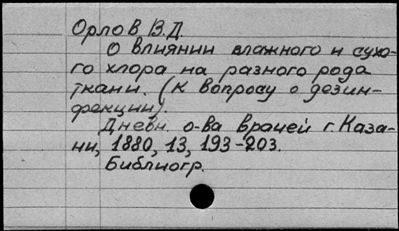 Орлов В.Д.
О влиянии влажного и сухо-
го хлора на разного рода
ткани. (К вопросу о дезин-
фекции)
Дневн. о-ва врачей г. Каза-
ни, 1880, 13, 193-203.
Библиогр.